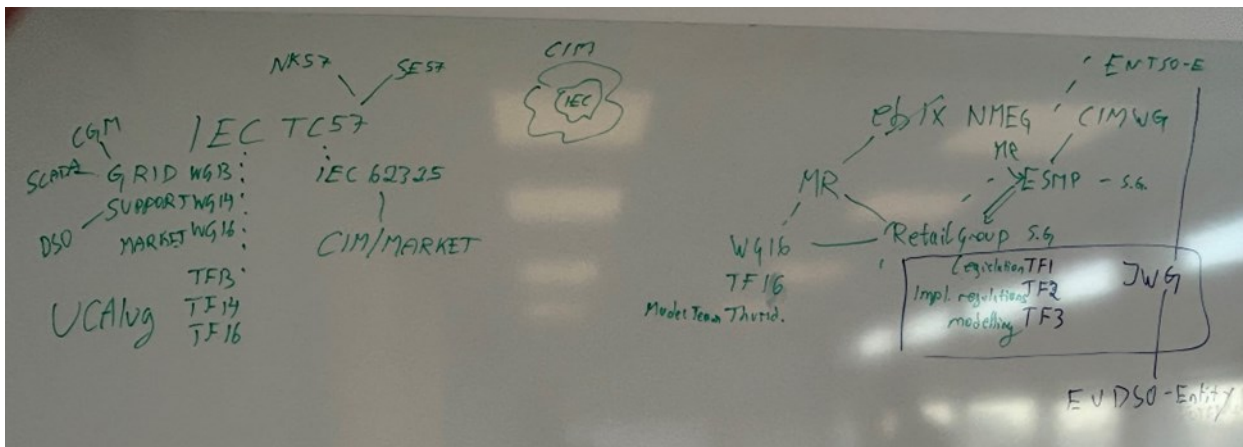 NK57 SE57
IEC TC57
CGM
SCADA GRID WG13
SUPPORT WG14
DSO
MARKET WG16
TF13
TF14
TF16
UCAIug
IEC 62325
CIM/MARKET
CIM
IEC
ENTSO-E
ebIX NMEG CIMWG
MR
MR ESMP - S.G.
WG16 Retail Group S.G
TF16
Model Team Thursd.
Legislation TF1
Impl. regulations TF2
modelling TF3
JWG
EU DSO-Entity